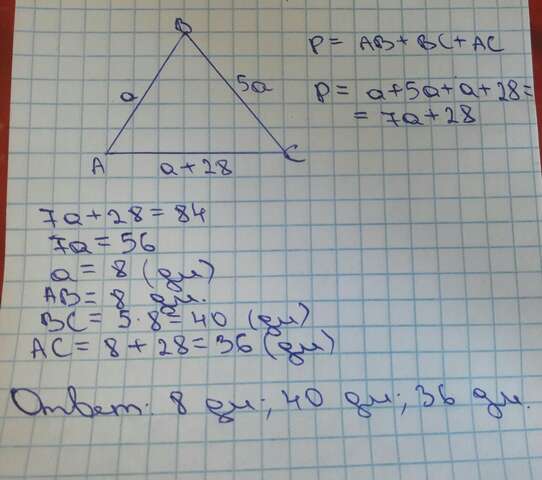 B
P = AB + BC + AC
a
5a
P = a + 5a + a + 28 =
= 7a + 28
A
C
a + 28
7a + 28 = 84
7a = 56
a = 8 (дм)
AB = 8 дм.
BC = 5 · 8 = 40 (дм)
AC = 8 + 28 = 36 (дм)
Ответ: 8 дм; 40 дм; 36 дм.